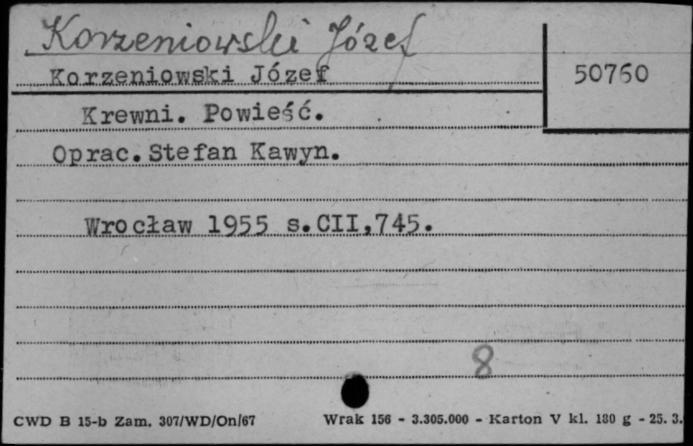 Korzeniowski Józef
Korzeniowski Józef
50760
Krewni. Powieść.
Oprac. Stefan Kawyn.
Wrocław 1955 s.CII,745.
8
CWD B 15-b Zam. 307/WD/On/67 Wrak 156 - 3.305.000 - Karton V kl. 180 g - 25.3.